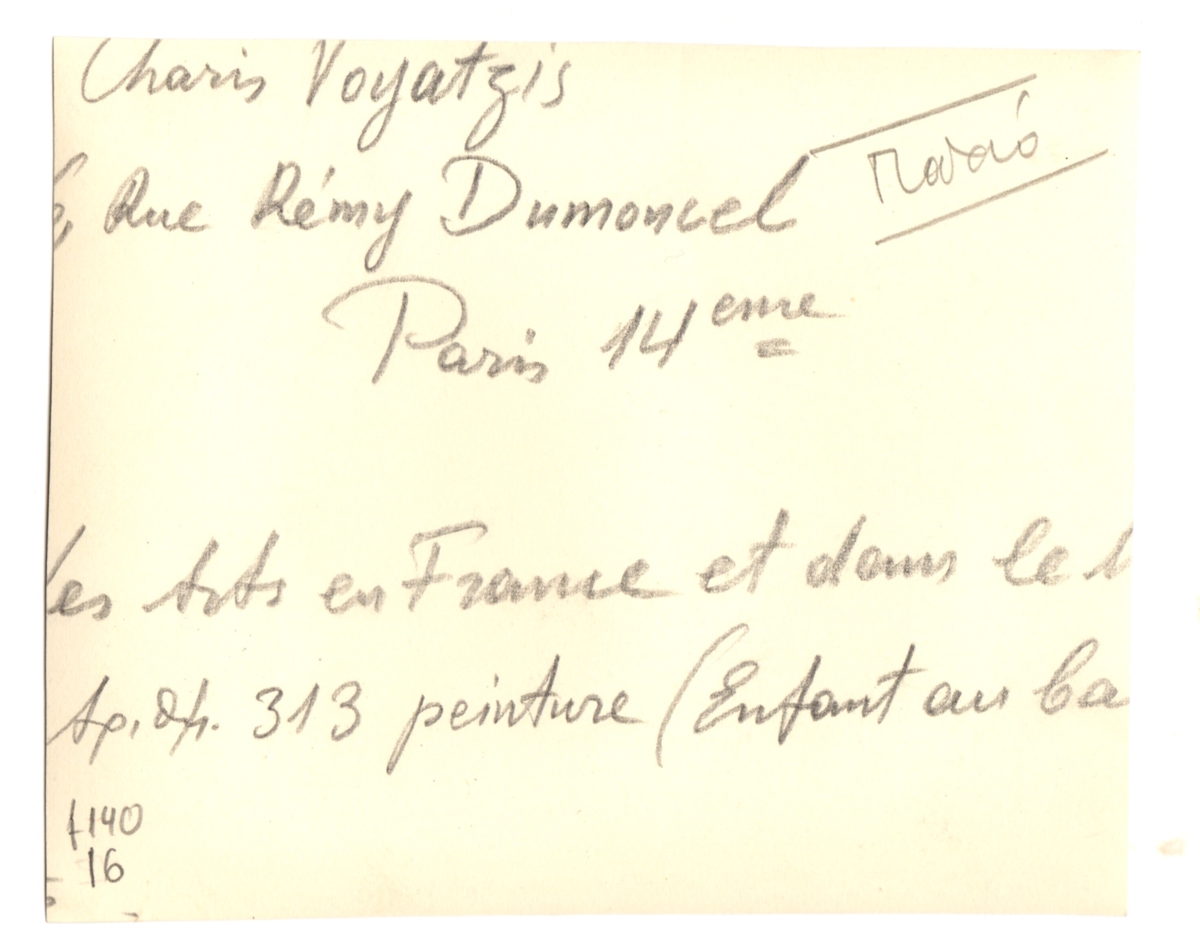 Charis Voyatzis
6, Rue Rémy Dumoncel
Παλιό
Paris 14eme
Les Arts en France et dans le
Αρ. φ. 313 peinture (Enfant au ba
f140
16